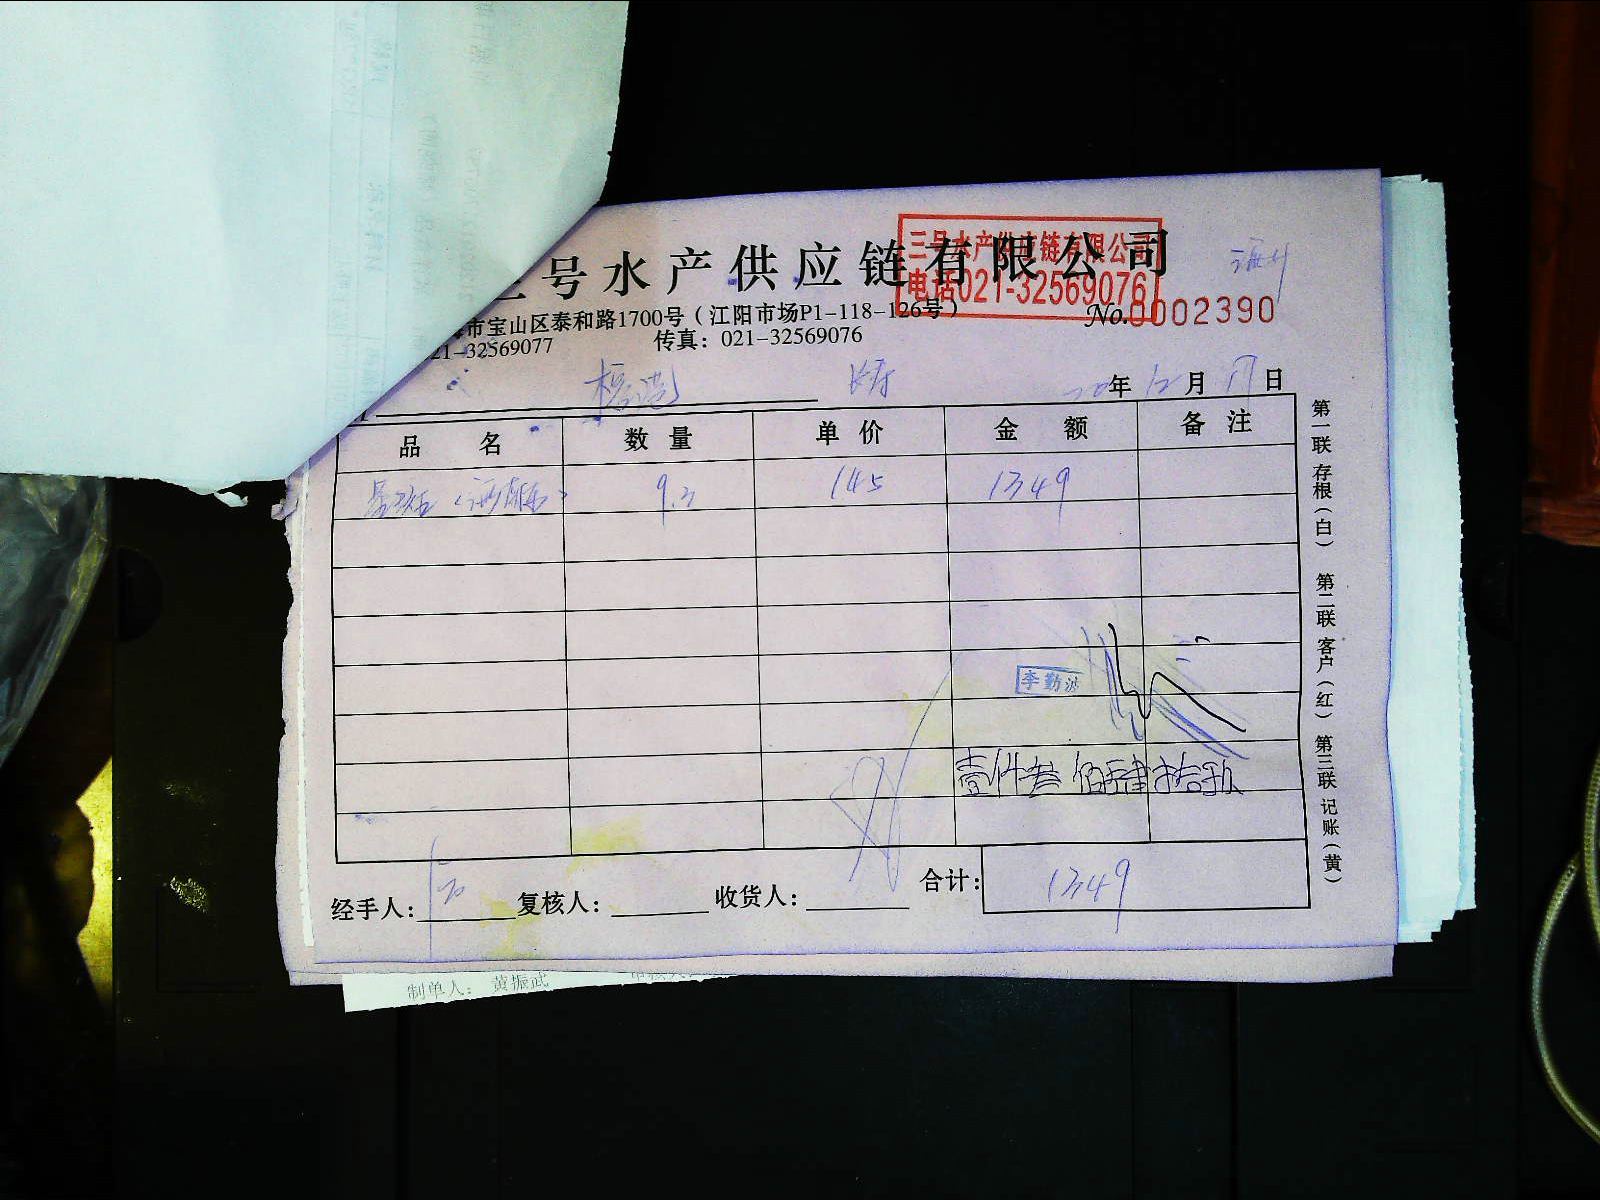 三号水产供应链有限公司
三号水产供应链有限公司
电话021-32569076
海市宝山区泰和路1700号（江阳市场P1-118-126号）
No.0002390
21-32569077 传真：021-32569076
20年 12月 日
品 名 数 量 单 价 金 额 备 注
9.3 145 1349
李勤波
壹仟叁佰肆拾玖
合计： 1349
经手人： 复核人： 收货人：
第一联 存根（白） 第二联 客户（红） 第三联 记账（黄）
制单人： 黄振武